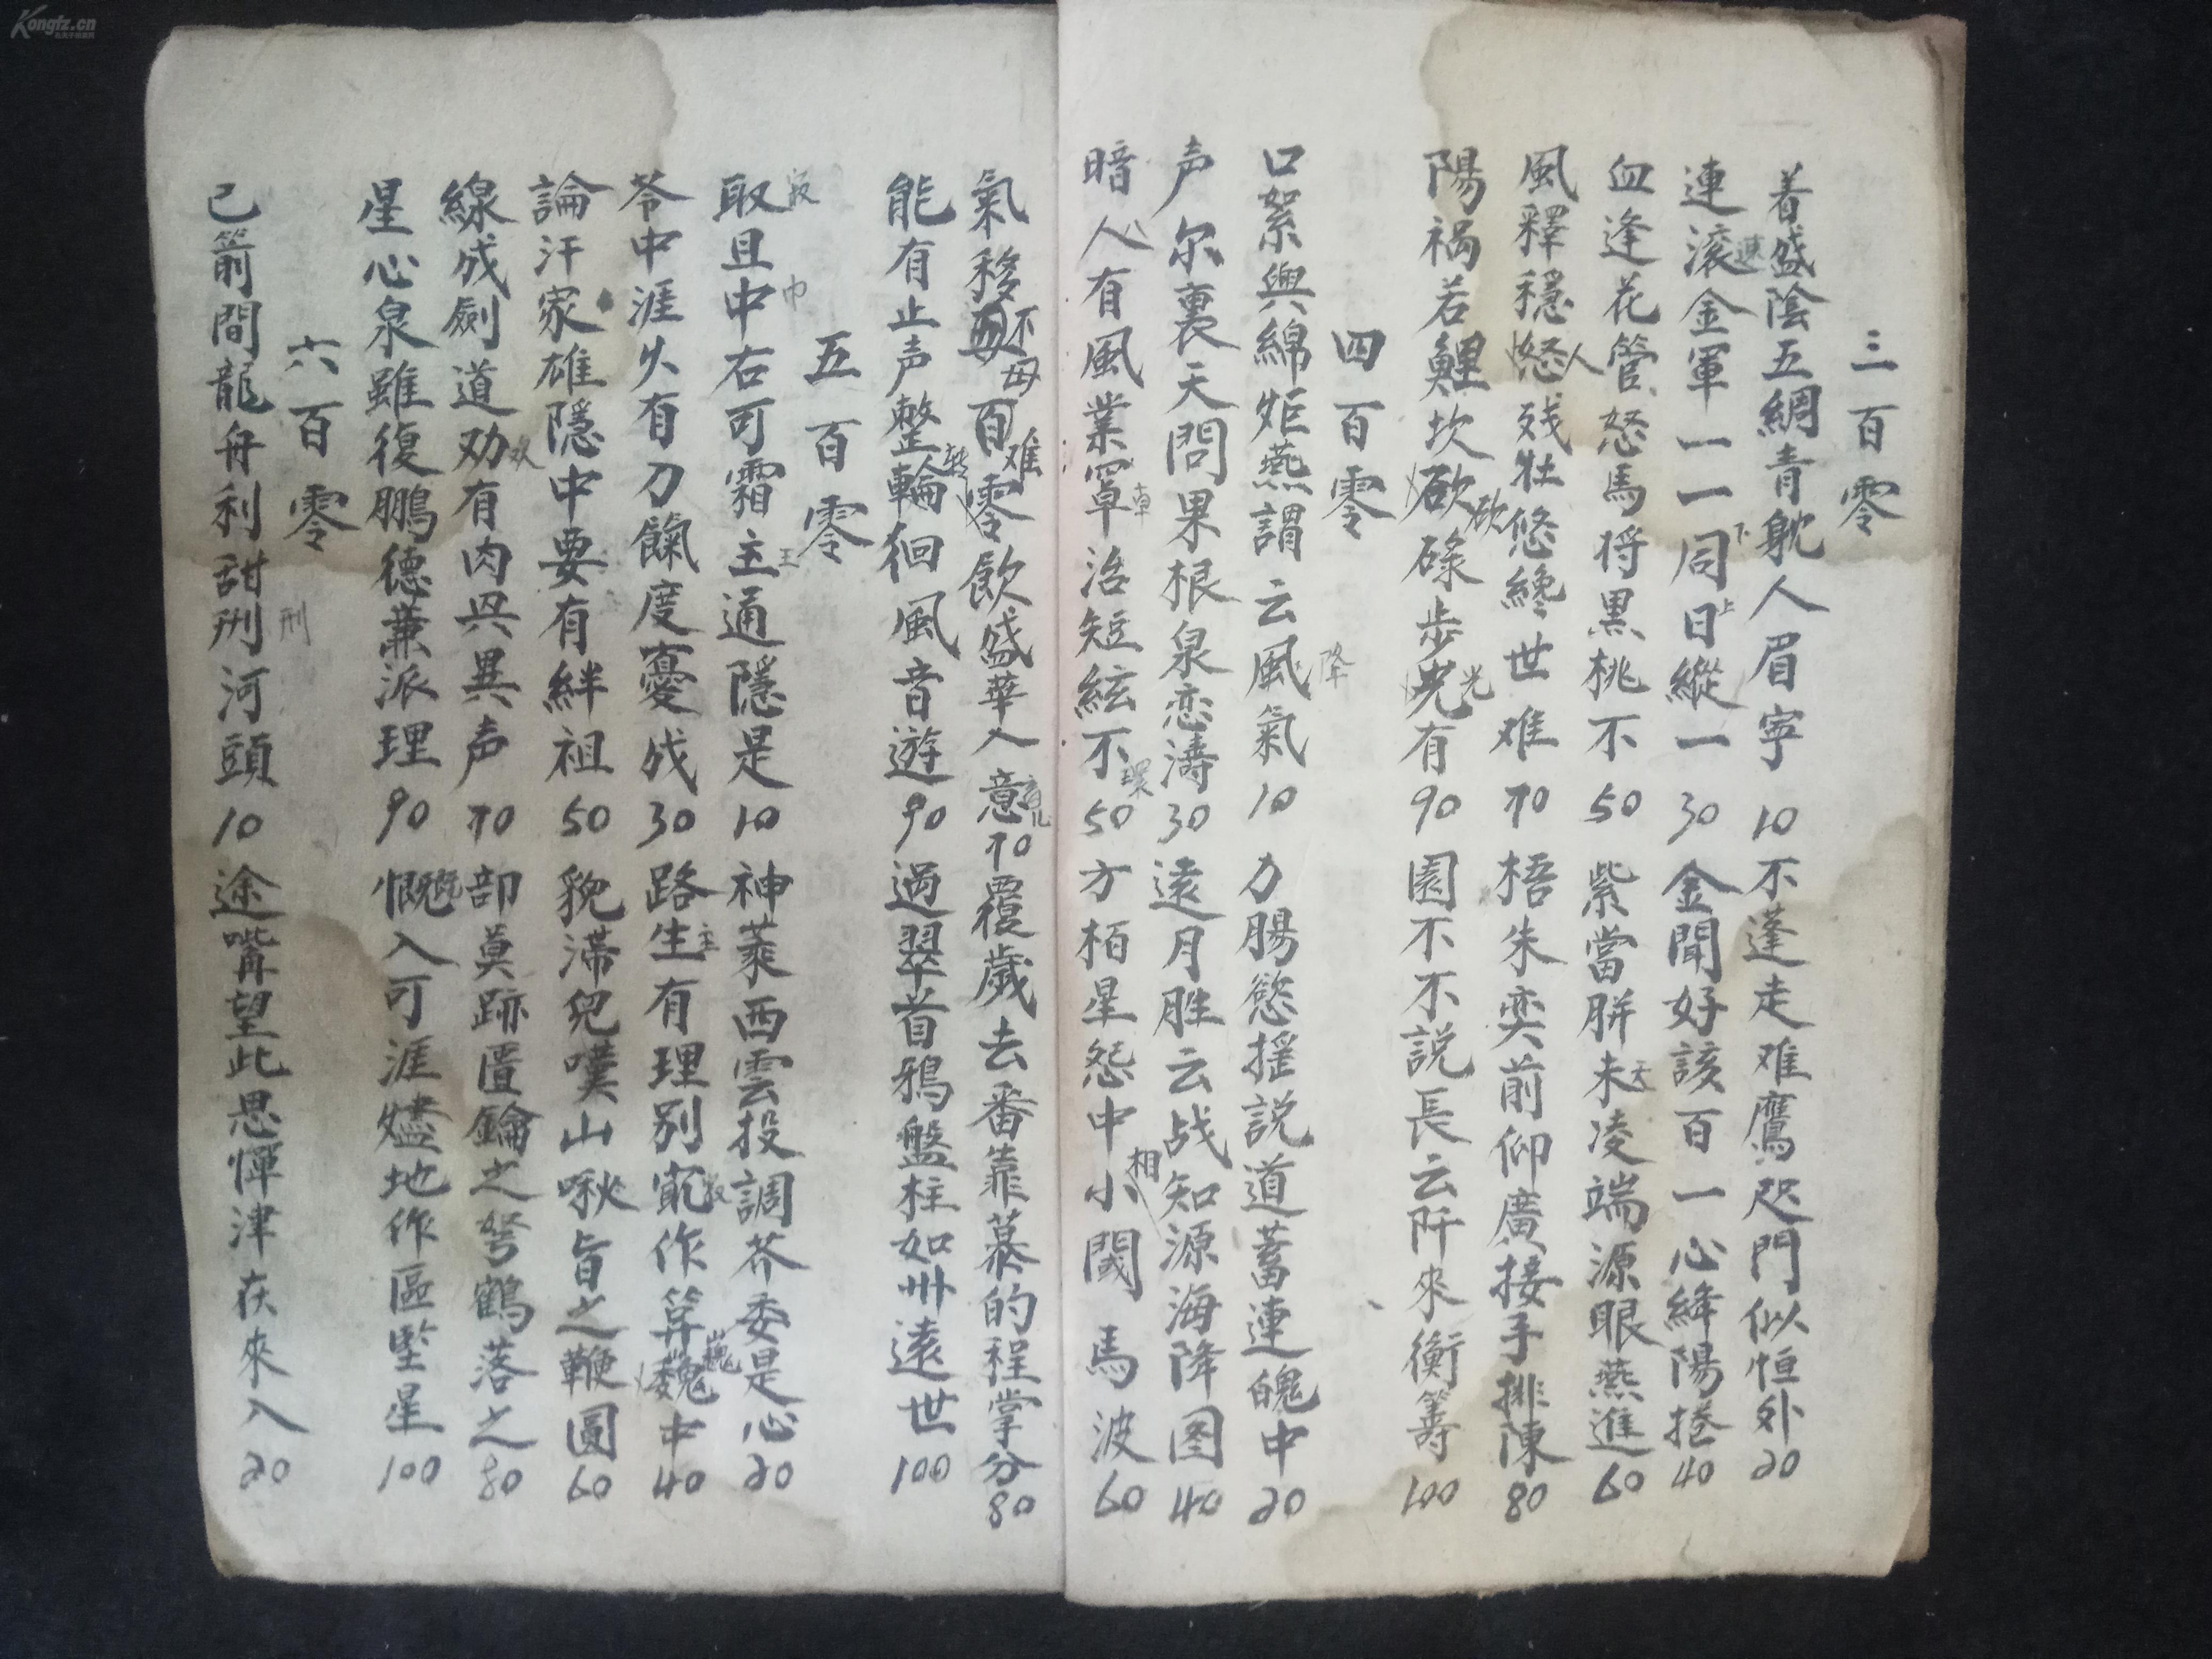 三百零
着盛陰五綢青躭人眉寜 10 不蓬走难鷹咫門似恒外 20
連滚金軍一一同日縱一 30 金聞好該百一心絳陽捲 40
速
下
上
血逢花管怒馬将黑桃不 50 紫當胼未凌端源眼燕進 60
天
風釋穩怒残牡悠纔世难 70 梧朱奕前仰廣接手排陳 80
人
陽禍若鯉坎碌步有 90 園不不説長云阡來衡籌 100
砍
光
四百零
口絮與綿炬燕謂云風氣 10 力腸慾摇説道蓄連魄中 20
降
声尔裏天問果根泉恋濤 30 遠月胜云战知源海降图 40
暗人有風業罩治短絃不 50 方栢星怨中小閾馬波 60
環
相
氣移百零飲盛華入意 70 覆歲去番靠慕的程掌分 80
不毋
难
能有止声整輪徊風音遊 90 過翠首鴉盤柱如卅遠世 100
转
五百零
取且中右可霜主通隱是 10 神蓁西雲投調芥委是心 20
巾
王
苓中涯久有刀餼度憂成 30 路生有理别作算巍中 40
主
巍
論汗家雄隱中要有絆祖 50 貌滞兜嘆山啾旨之鞭圓 60
線成劍道劝有肉與異声 70 部莫跡匿鑰之弩鶴落之 80
双
星心泉雖復鵬德蒹派理 90 慨入可涯燼地作區墅星 100
六百零
己箭間龍舟利甜刑河頭 10 途嘴望此思惲津在來入 20
刑
Kongfz.cn